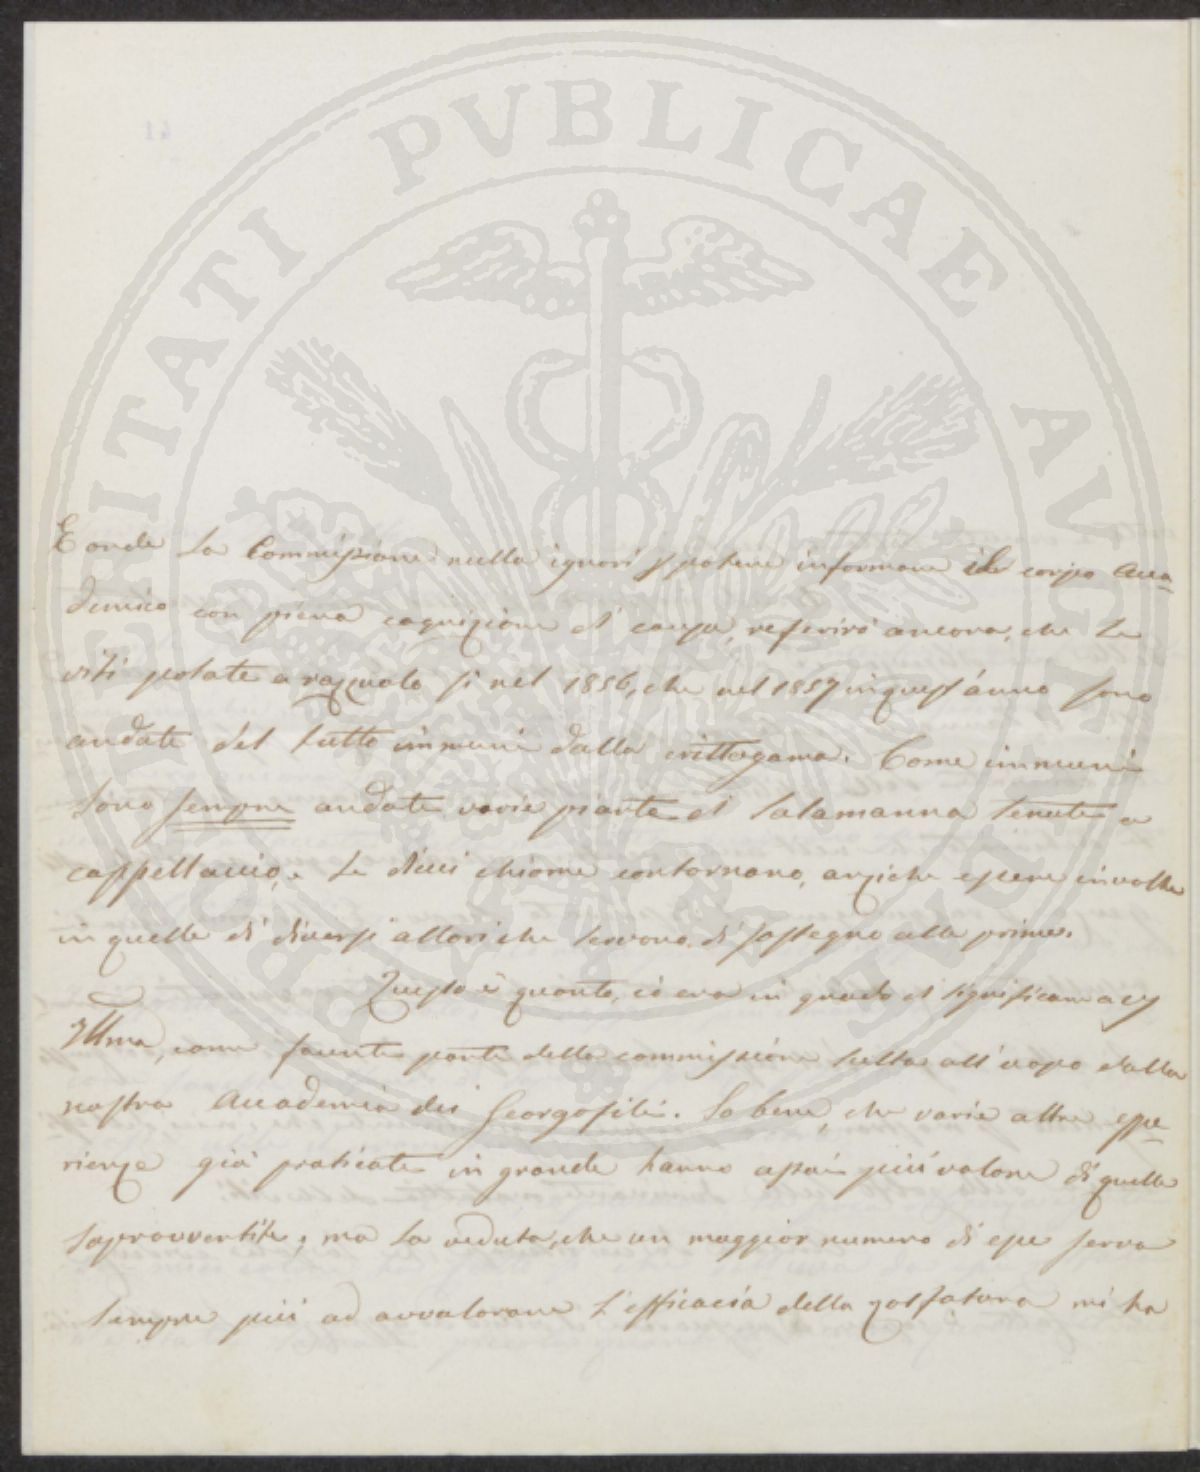 PROSPERITATI PUBLICAE AUGENDAE
E onde la Commissione nulla ignori p potere informare il corpo Acca=
demico con piena cognizione di causa, referirò ancora, che le
viti potate a razzuolo sì nel 1856, che nel 1857 in quest'anno sono
andate del tutto immuni dalla crittogama. Come immuni
sono sempre andate varie piante di Salamanna tenute a
cappellaccio, e le di cui chiome contornano, anziché essere involte
in quelle di diversi allori che servono di sostegno alle prime.
Questo è quanto, io era in grado di significare a
Illma, come facente parte della commissione all'uopo dalla
nostra Accademia dei Georgofili. So bene, che varie altre espe=
rienze già praticate in grande hanno assai più valore di quelle
, ma la veduta, che un maggior numero di esse serva
sempre più ad avvalorare l'efficacia della zolfatura mi ha